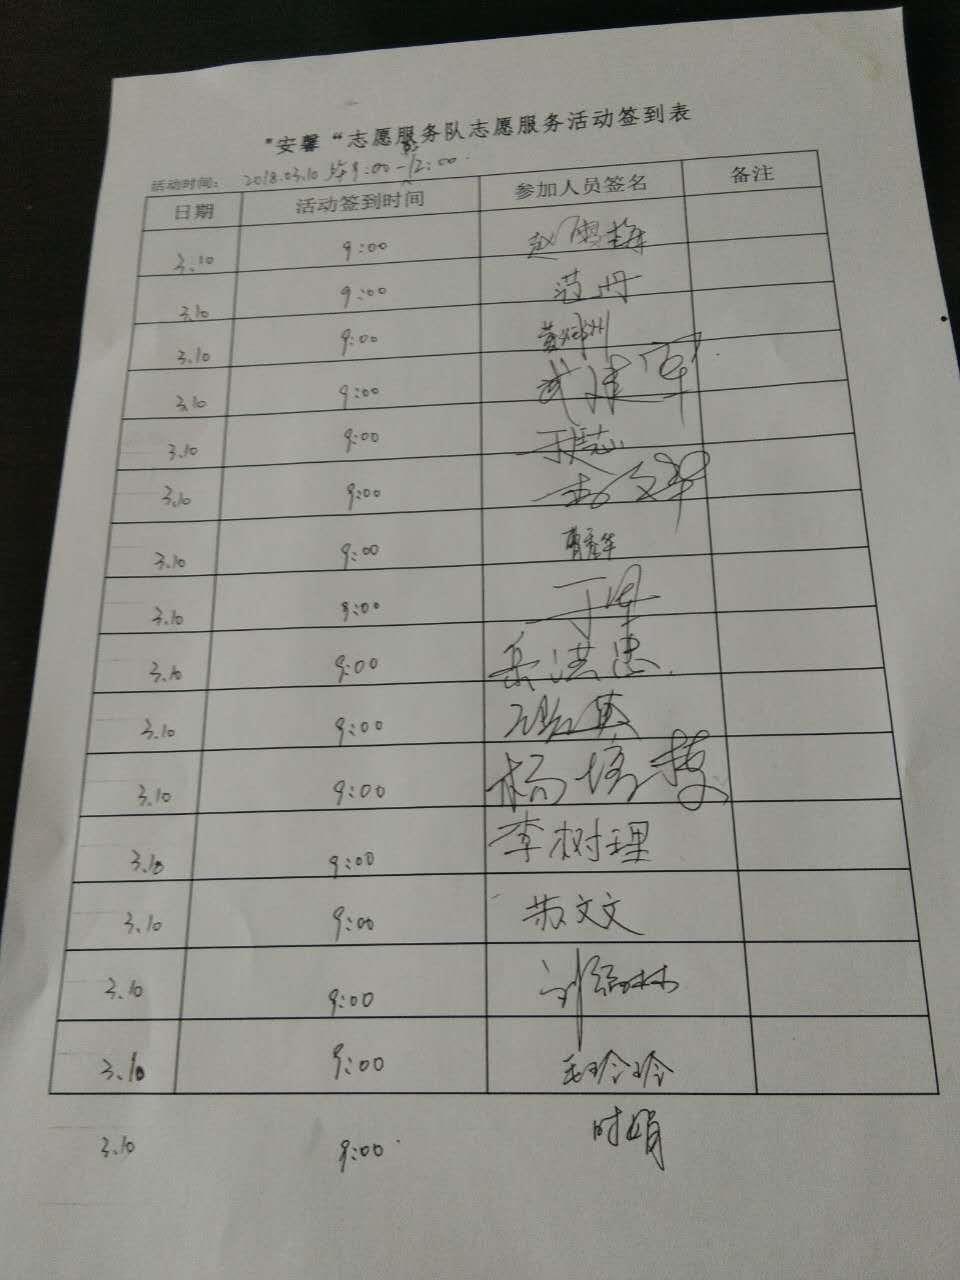 "安馨“志愿服务队志愿服务活动签到表
活动时间： 2018.03.10 9:00-12:00.
日期 活动签到时间 参加人员签名 备注
3.10 9:00 赵
3.10 9:00 范丹
3.10 9:00 州
3.10 9:00 武建军
3.10 9:00
3.10 9:00
3.10 9:00 曹秀华
3.10 9:00 丁军
3.10 9:00 岳洪忠
3.10 9:00
3.10 9:00 杨培
3.10 9:00 李树理
3.10 9:00 苏文文
3.10 9:00 刘琳
3.10 9:00 玲玲
3.10 9:00 时娟